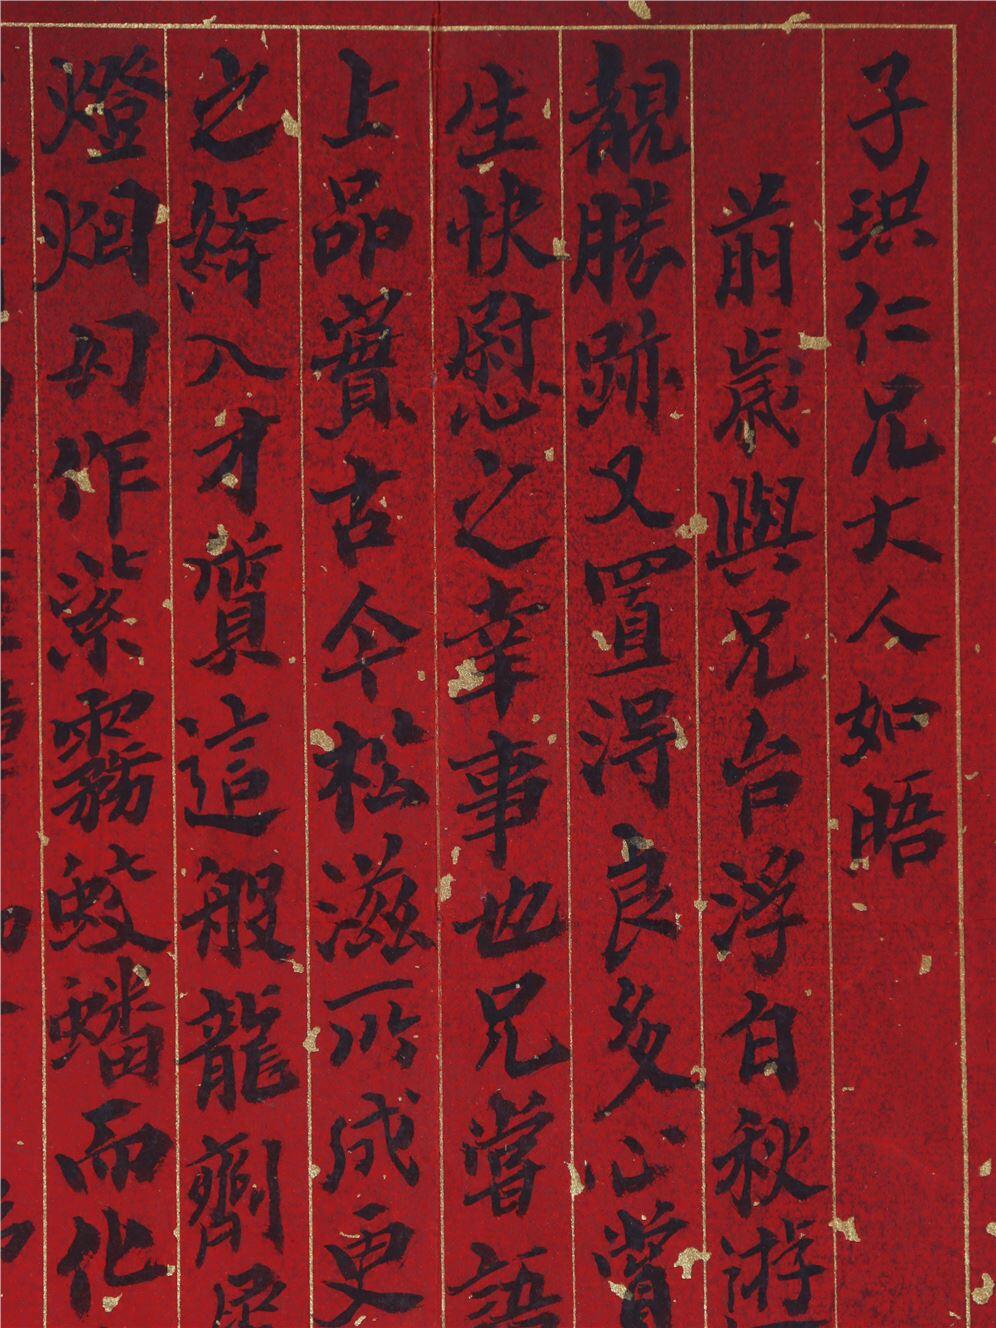 子珙仁兄大人如晤
前歲與兄台浮白秋游
覩勝跡又置得良多心賞
生快慰之幸事也兄嘗語
上品實古今松滋所成更
之絳入才質這般龍劑
燈烟勻作紫霧蛟蟠而化